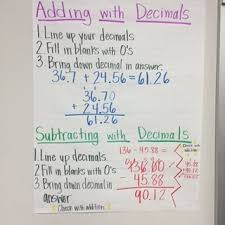 Adding with Decimals
1. Line up your decimals
2. Fill in blanks with 0's
3. Bring down decimal in answer.
36.7 + 24.56 = 61.26
36.70
+ 24.56
61.26
Subtracting with Decimals
1. Line up decimals.
2. Fill in blanks with 0's
3. Bring down decimal in
answer
Check with addition
136 - 45.88 =
136.00
45.88
90.12
Check with
addition
45.88
90.12